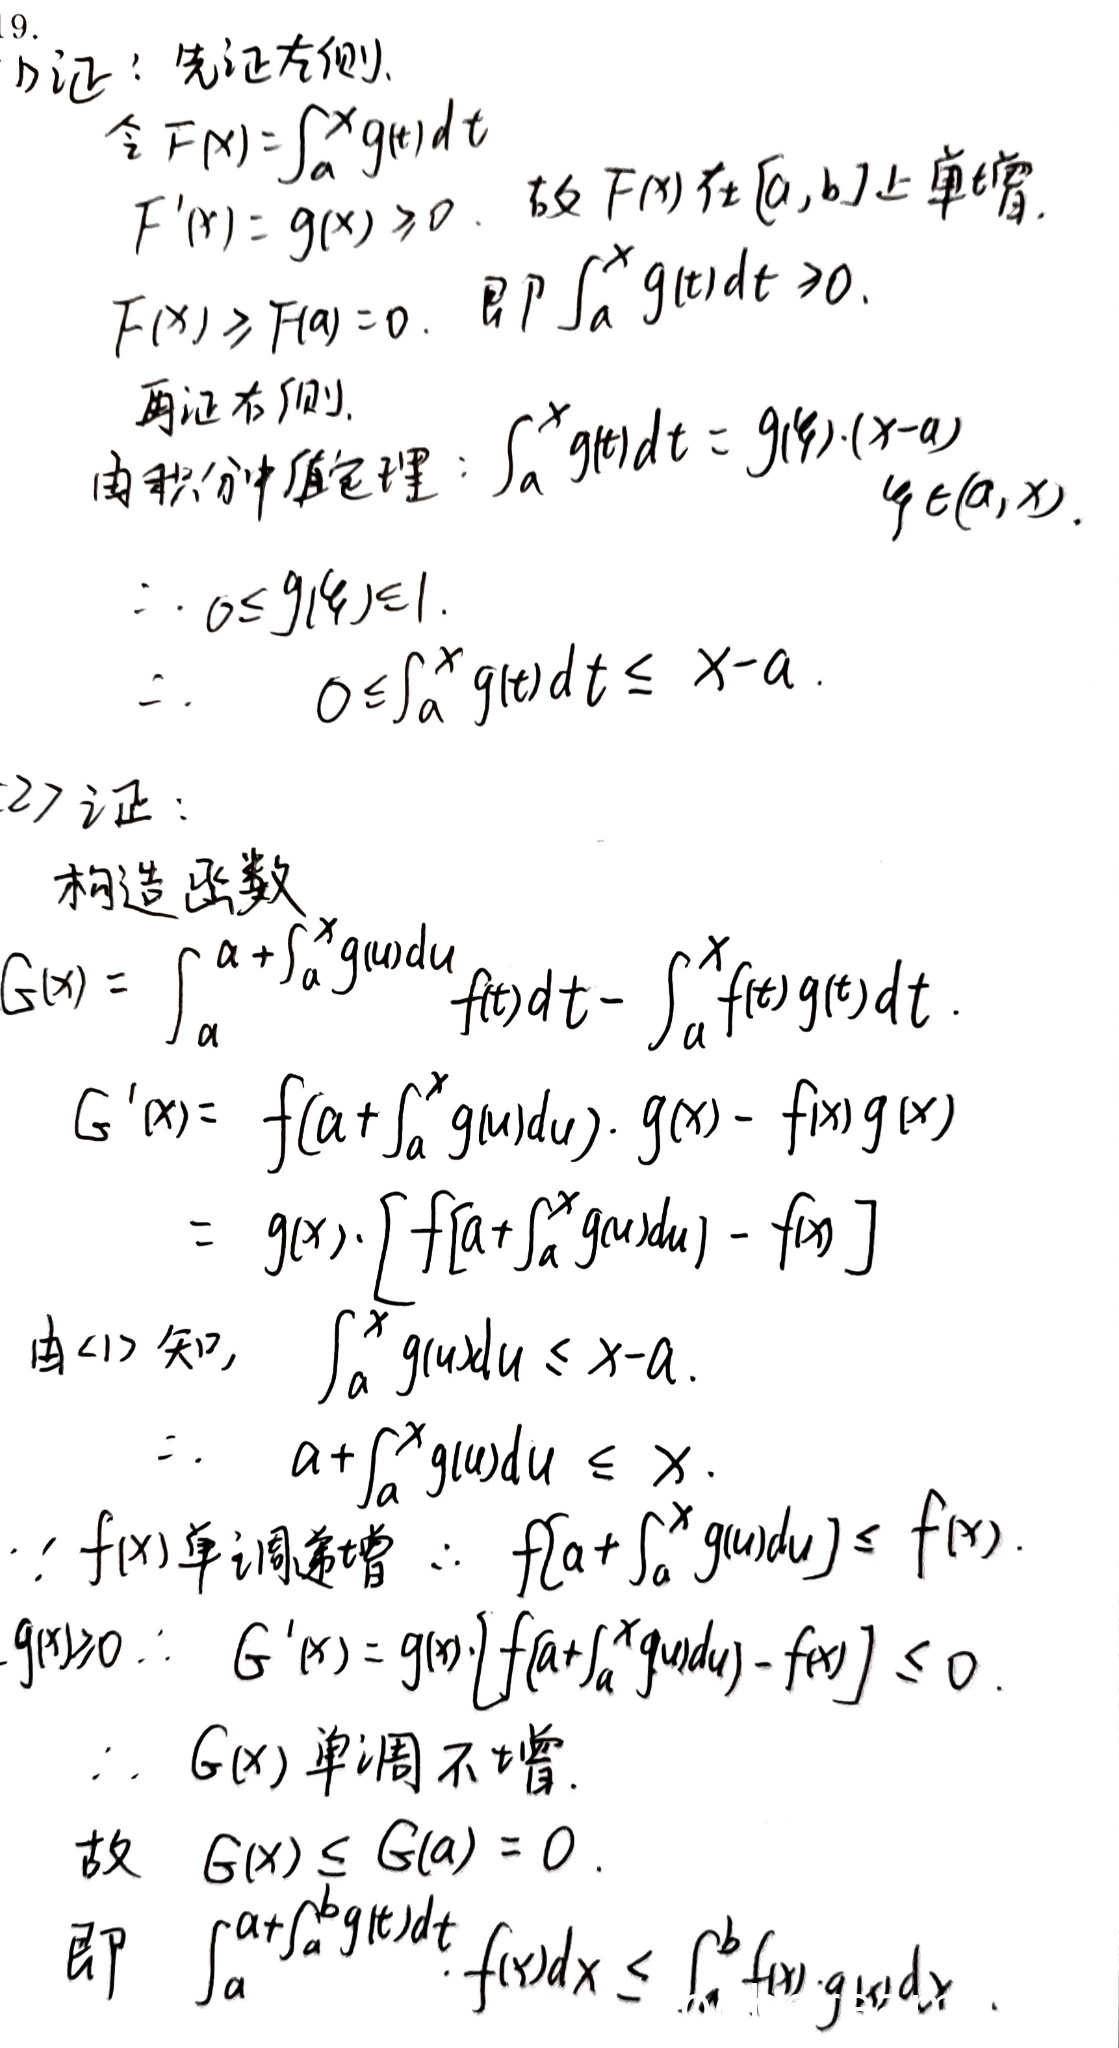 19.
(1)证：先证左侧.
令 F(x)=∫_a^x g(t)dt
F'(x)=g(x)≥0. 故 F(x) 在[a,b]上单增.
F(x)≥F(a)=0. 即 ∫_a^x g(t)dt≥0.
再证右侧.
由积分中值定理：∫_a^x g(t)dt=g(ξ)·(x-a)
ξ∈(a,x).
∵ 0≤g(ξ)≤1.
∴ 0≤∫_a^x g(t)dt≤x-a.
<2>证：
构造函数
G(x)=∫_a^{a+∫_a^x g(u)du} f(t)dt-∫_a^x f(t)g(t)dt.
G'(x)=f(a+∫_a^x g(u)du)·g(x)-f(x)g(x)
=g(x)·[f[a+∫_a^x g(u)du]-f(x)]
由<1>知, ∫_a^x g(u)du≤x-a.
∴ a+∫_a^x g(u)du≤x.
∵f(x)单调递增 ∴ f[a+∫_a^x g(u)du]≤f(x).
g(x)≥0 ∴ G'(x)=g(x)·[f[a+∫_a^x g(u)du]-f(x)]≤0.
∴ G(x)单调不增.
故 G(x)≤G(a)=0.
即 ∫_a^{a+∫_a^b g(t)dt}·f(x)dx≤∫_a^b f(x)·g(x)dx.